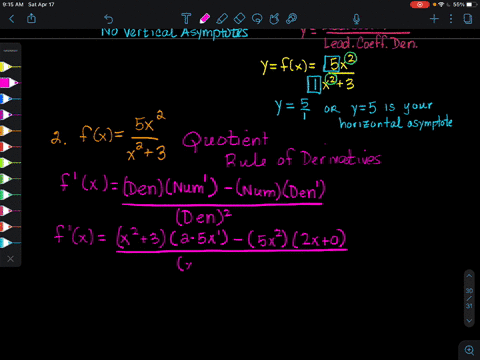 9:15 AM Sat Apr 17
55%
No Vertical Asymptotes
y =
Lead. Coeff. Den.
y = f(x) = 5x²
1x² + 3
y = 5/1 or y = 5 is your
horizontal asymptote
2. f(x) = 5x²
x² + 3
Quotient
Rule of Derivatives
f'(x) = (Den)(Num') - (Num)(Den')
(Den)²
f'(x) = (x² + 3)(2·5x¹) - (5x²)(2x+0)
(x
30
31